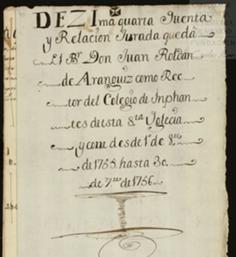 DEZIma quarta Quenta
y Relacion Jurada que dà
el Br. Don Juan Roldan
de Aranguiz como Rec
tor del Colegio de Inphan
tes de esta Sta Yglecia
y corre desde 1º de
de 1755 hasta 30
de 7re de 1756